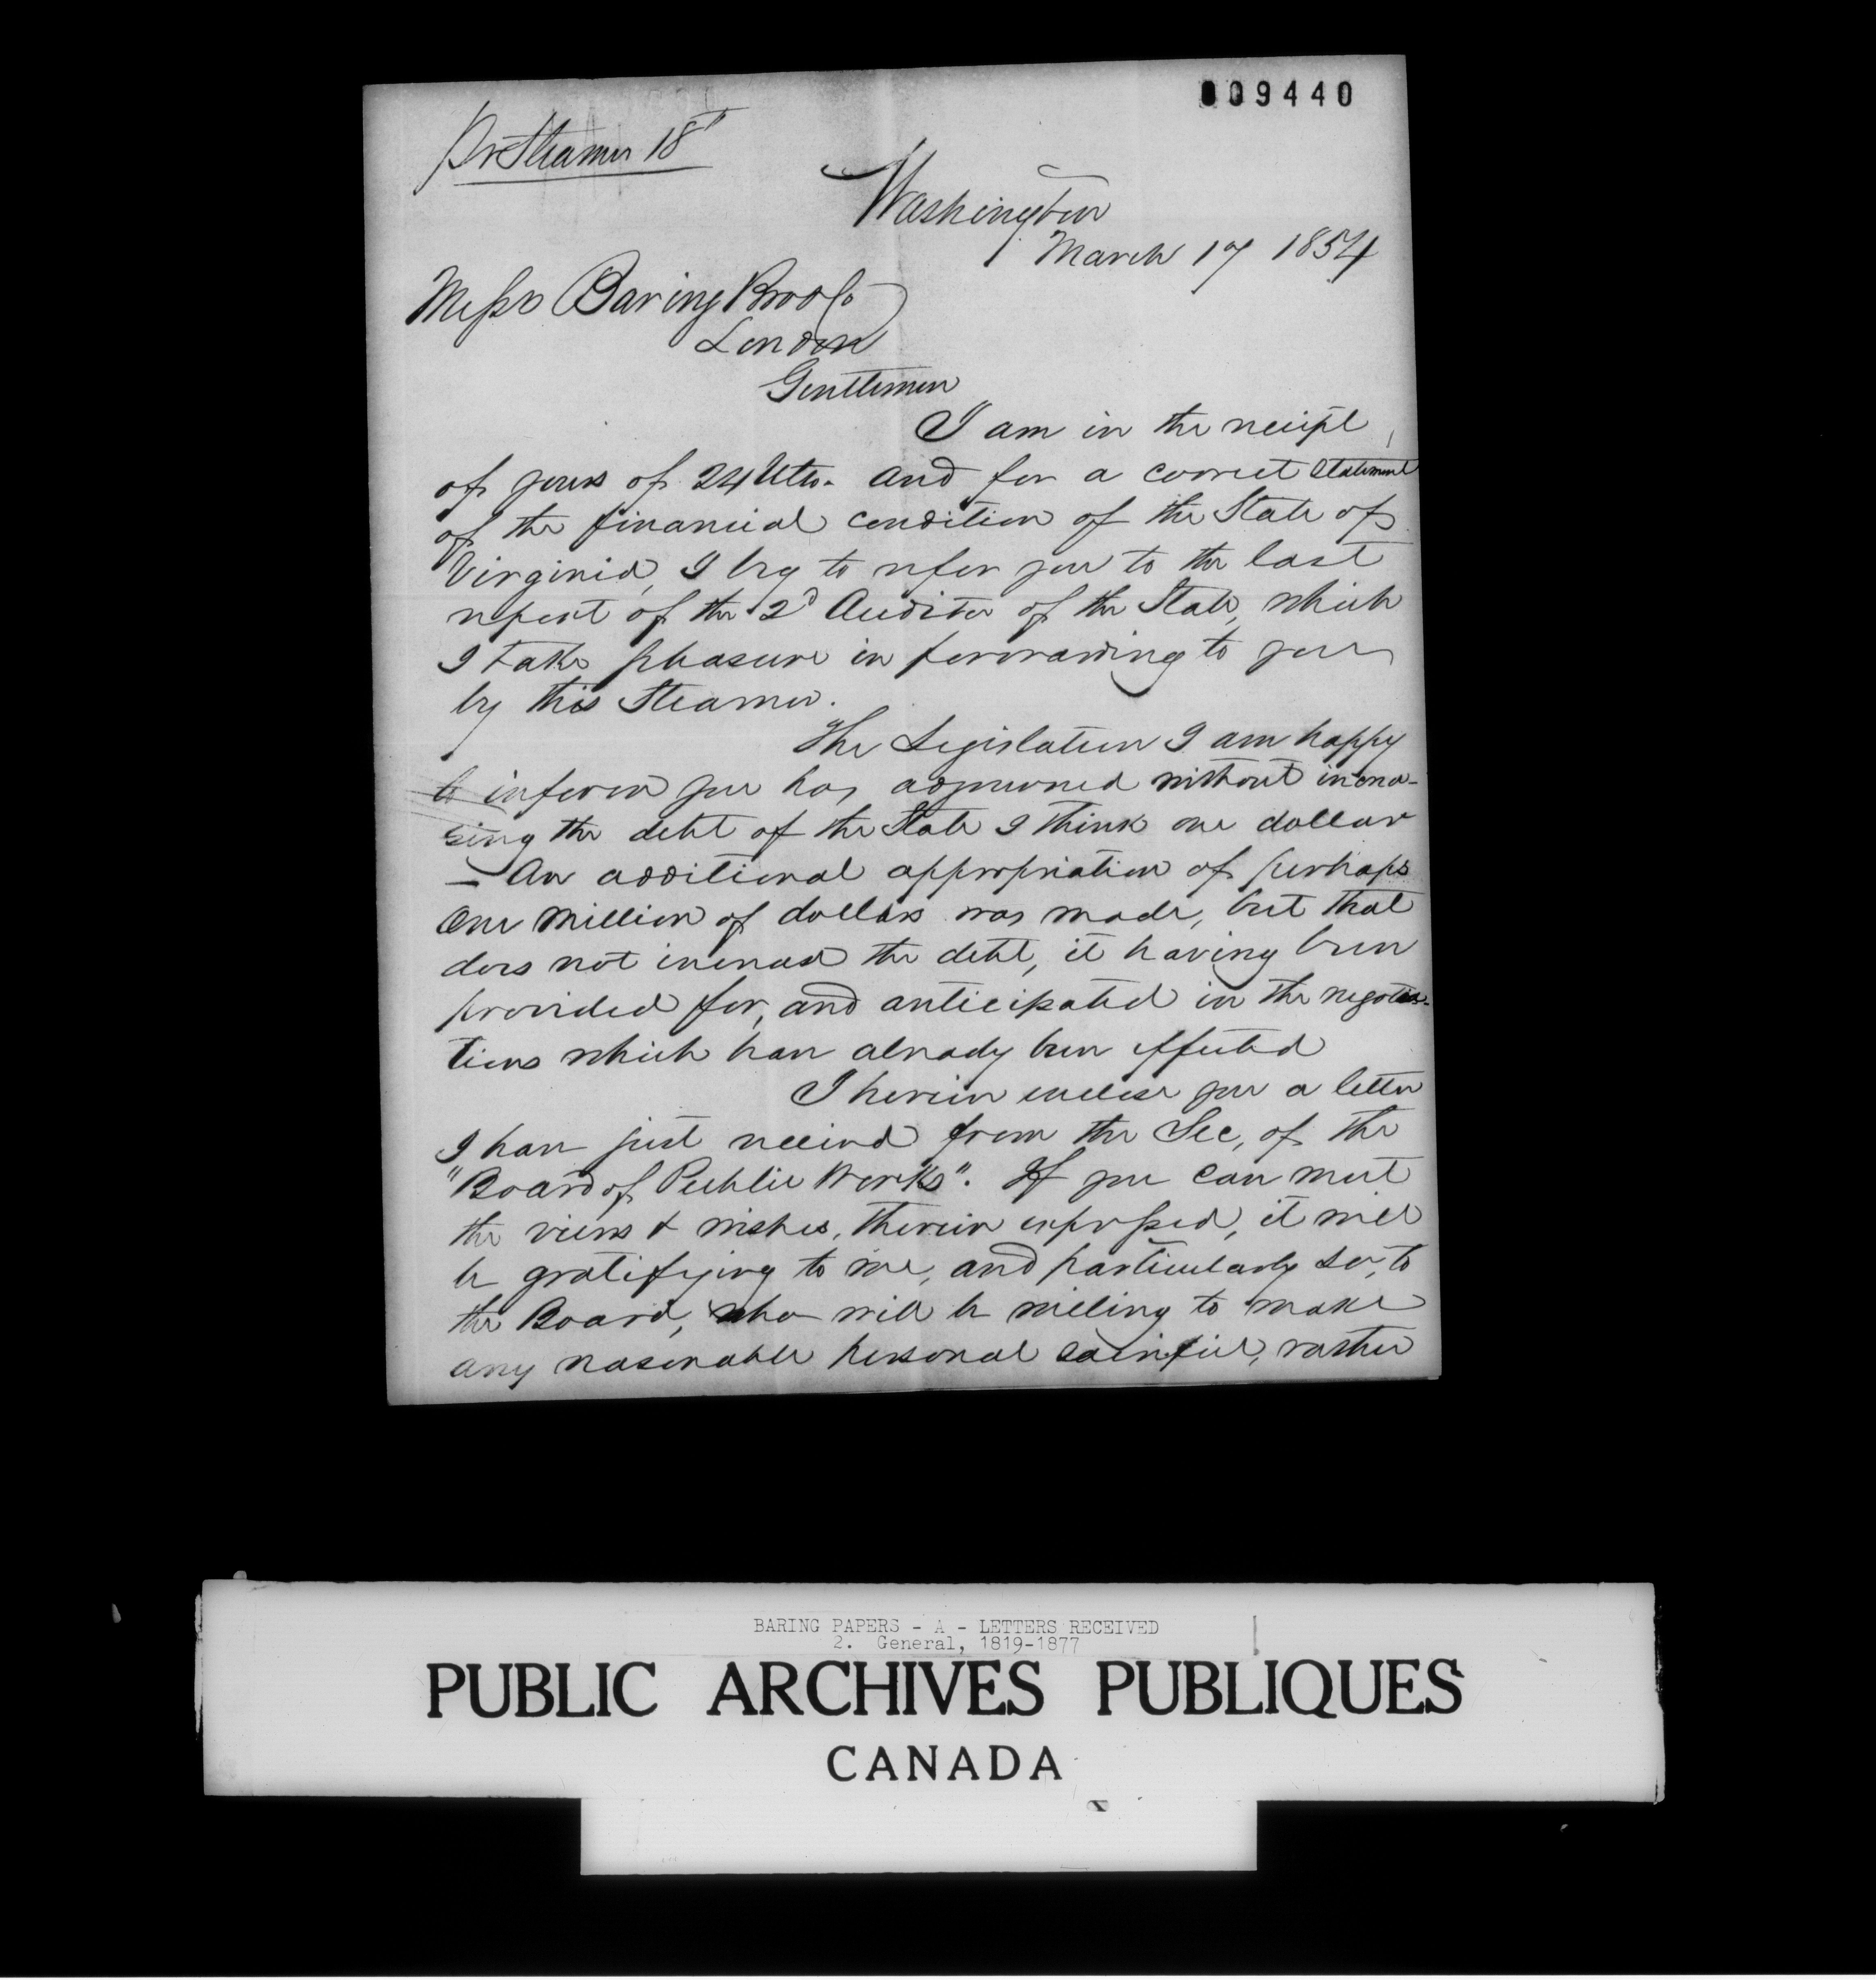 009440
Pr Steamer 18"
Washington
March 17 1854
Messrs Baring Bros Co
London
Gentlemen
I am in the receipt
of yours of 24 Ulto. and for a correct statement
of the financial condition of the State of
Virginia, I beg to refer you to the last
report of the 2d Auditor of the State, which
I take pleasure in forwarding to you
by this Steamer.
The Legislature I am happy
to inform you has adjourned without increa-
sing the debt of the State I think one dollar
— An additional appropriation of perhaps
One million of dollars was made, but that
does not increase the debt, it having been
provided for, and anticipated in the negotia-
tions which have already been effected
I herein enclose you a letter
I have just received from the Sec, of the
"Board of Public Works". If you can meet
the views & wishes, therein expressed, it will
be gratifying to me, and particularly so, to
the Board, who will be willing to make
any reasonable personal sacrifice, rather
BARING PAPERS - A - LETTERS RECEIVED
2. General, 1819-1877
PUBLIC ARCHIVES PUBLIQUES
CANADA